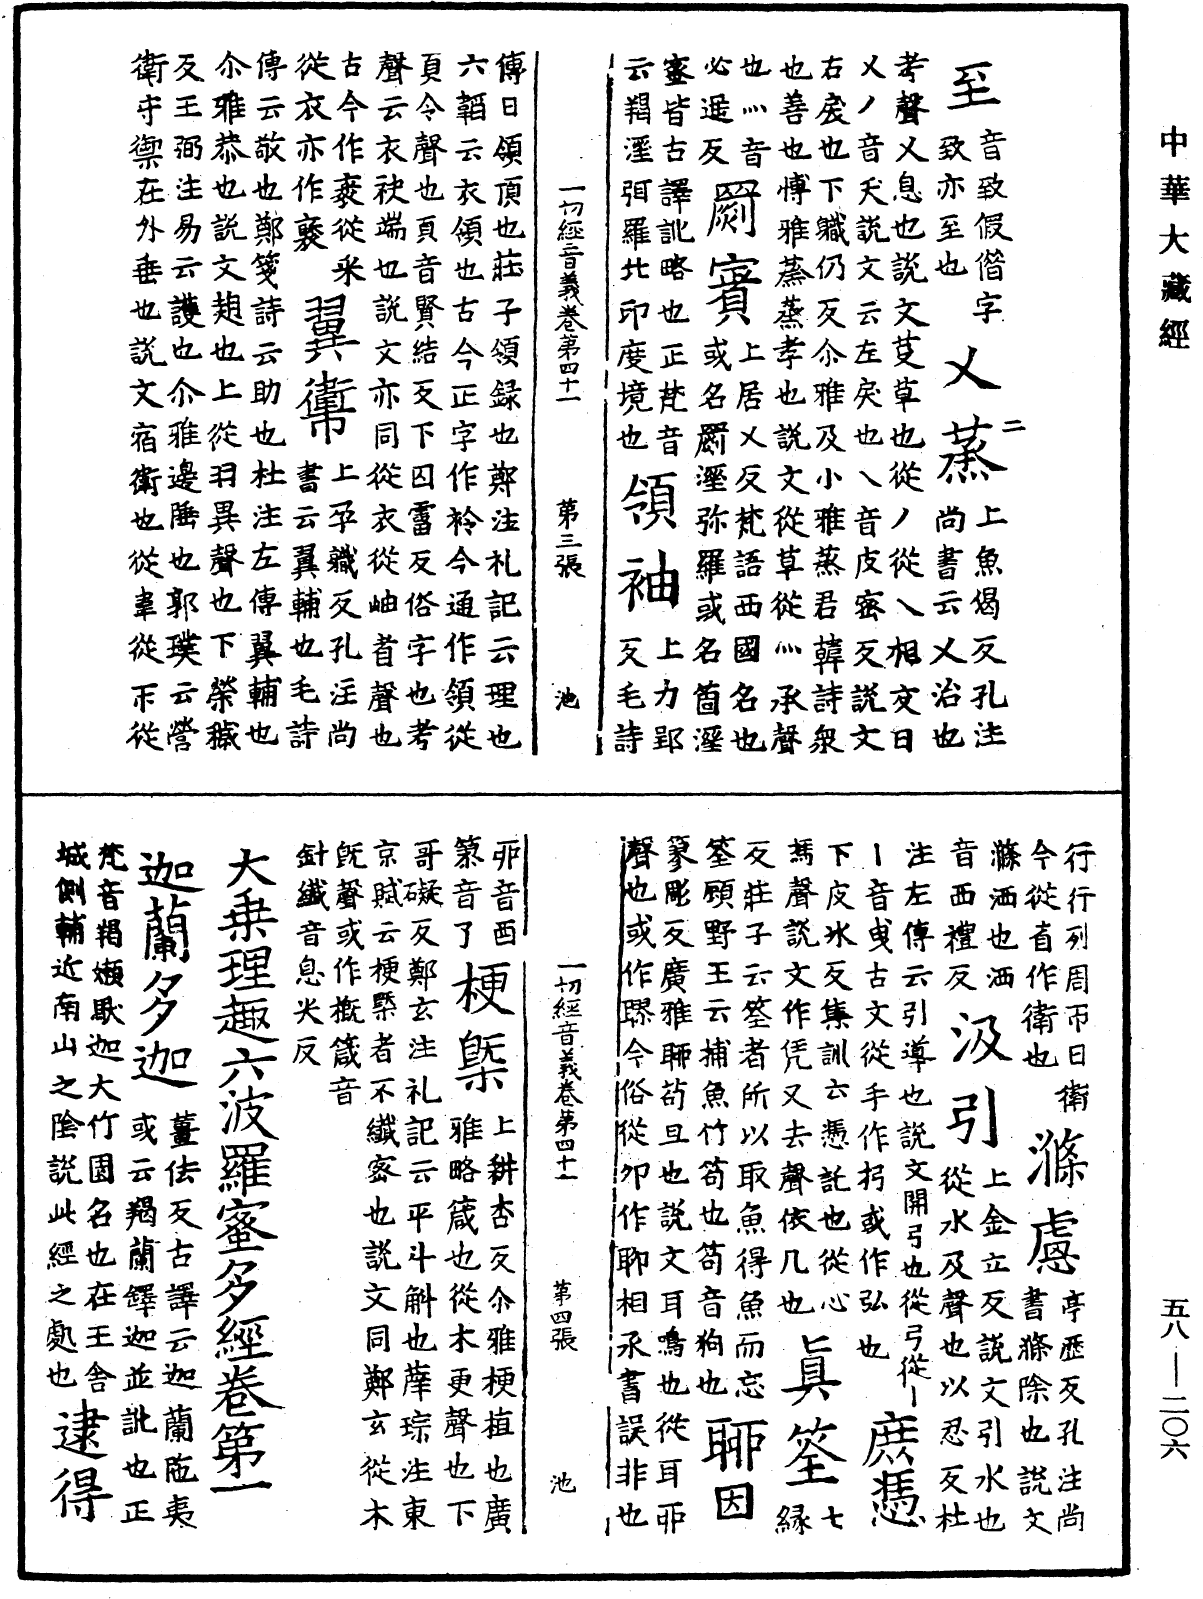 中華大藏經
至 音致假偺字
致亦至也
乂蒸 二 上魚偈反孔注
尚書云乂治也
考聲乂息也説文芟草也從丿從乀相交曰
乂丿音夭説文云左戾也乀音皮蜜反説文
右戾也下軄仍反尒雅及小雅蒸君韓詩衆
也善也愽雅蒸蒸孝也説文從草從灬承聲
也灬音必遥反
罽賔 上居乂反梵語西國名也
或名罽溼弥羅或名箇溼
蜜皆古譯訛略也正梵音
云羯溼弭羅北印度境也
領袖 上力郢
反毛詩
一切經音義卷第四十一 第三張 池
傳曰領頂也莊子領録也鄭注礼記云理也
六韜云衣領也古今正字作衿今通作領從
頁令聲也頁音賢結反下囚霤反俗字也考
聲云衣袂端也説文亦同從衣從岫省聲也
古今作褎從釆
從衣亦作褏
翼衞 上孕軄反孔注尚
書云翼輔也毛詩
傳云敬也鄭箋詩云助也杜注左傳翼輔也
尒雅恭也説文趐也上從羽異聲也下榮穢
反王弼注易云護也尒雅邊陲也郭璞云營
衛守禦在外垂也説文宿衛也從韋從帀從
行行列周帀曰衛
今從省作衛也
滌慮 亭歴反孔注尚
書滌除也説文
滌洒也洒
音西禮反
汲引 上金立反説文引水也
從水及聲也以忍反杜
注左傳云引導也説文開弓也從弓從丨
丨音曵古文從手作扚或作弘也
庶憑 七
下皮冰反集訓云憑託也從心
馮聲説文作凭又去聲依几也
真筌 縁
反莊子云筌者所以取魚得魚而忘
筌顧野王云捕魚竹笱也笱音狗也
聊因
篆彫反廣雅聊苟且也説文耳鳴也從耳丣
聲也或作聮今俗從夘作聊相承書誤非也
一切經音義卷第四十一 第四張 池
丣音酉
篆音了
梗槩 上耕杏反尒雅梗植也廣
雅略箴也從木更聲也下
哥礙反鄭玄注礼記云平斗斛也薛琮注東
京賦云梗槩者不纖宻也説文同鄭玄從木
旣聲或作概箴音
針纖音息尖反
大乗理趣六波羅蜜多經卷第一
迦蘭多迦 薑佉反古譯云迦蘭陁夷
或云羯蘭鐸迦並訛也正
梵音羯嬾馱迦大竹園名也在王舎
城側輔近南山之陰説此經之處也
逮得
五八—二〇六